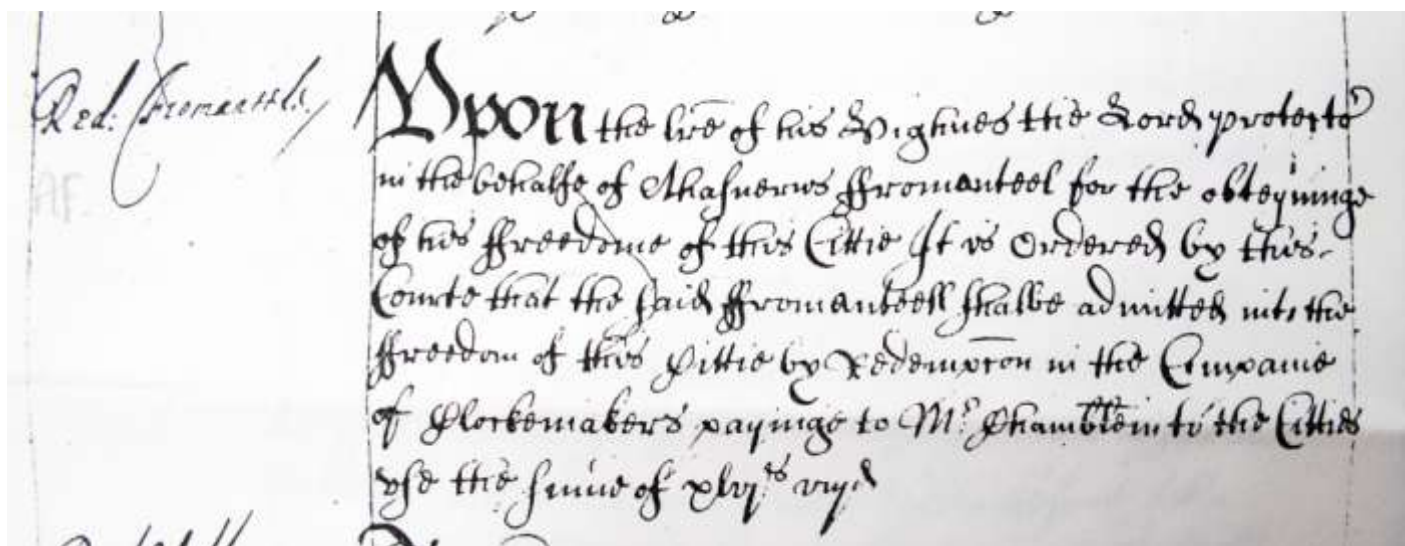 Red: Fromanteel.
Vpon the lrē of his Highnes the Lord protector
in the behalfe of Ahasuerus ffromanteel for the obteyninge
of his ffreedome of this Cittie It is Ordered by this
Courte that the said ffromanteell shalbe admitted into the
ffreedom of this Cittie by Redempcon in the Companie
of Clockemakers payinge to Mr. Chamblein to the Citties
vse the summe of xlvjs viijd
AF.